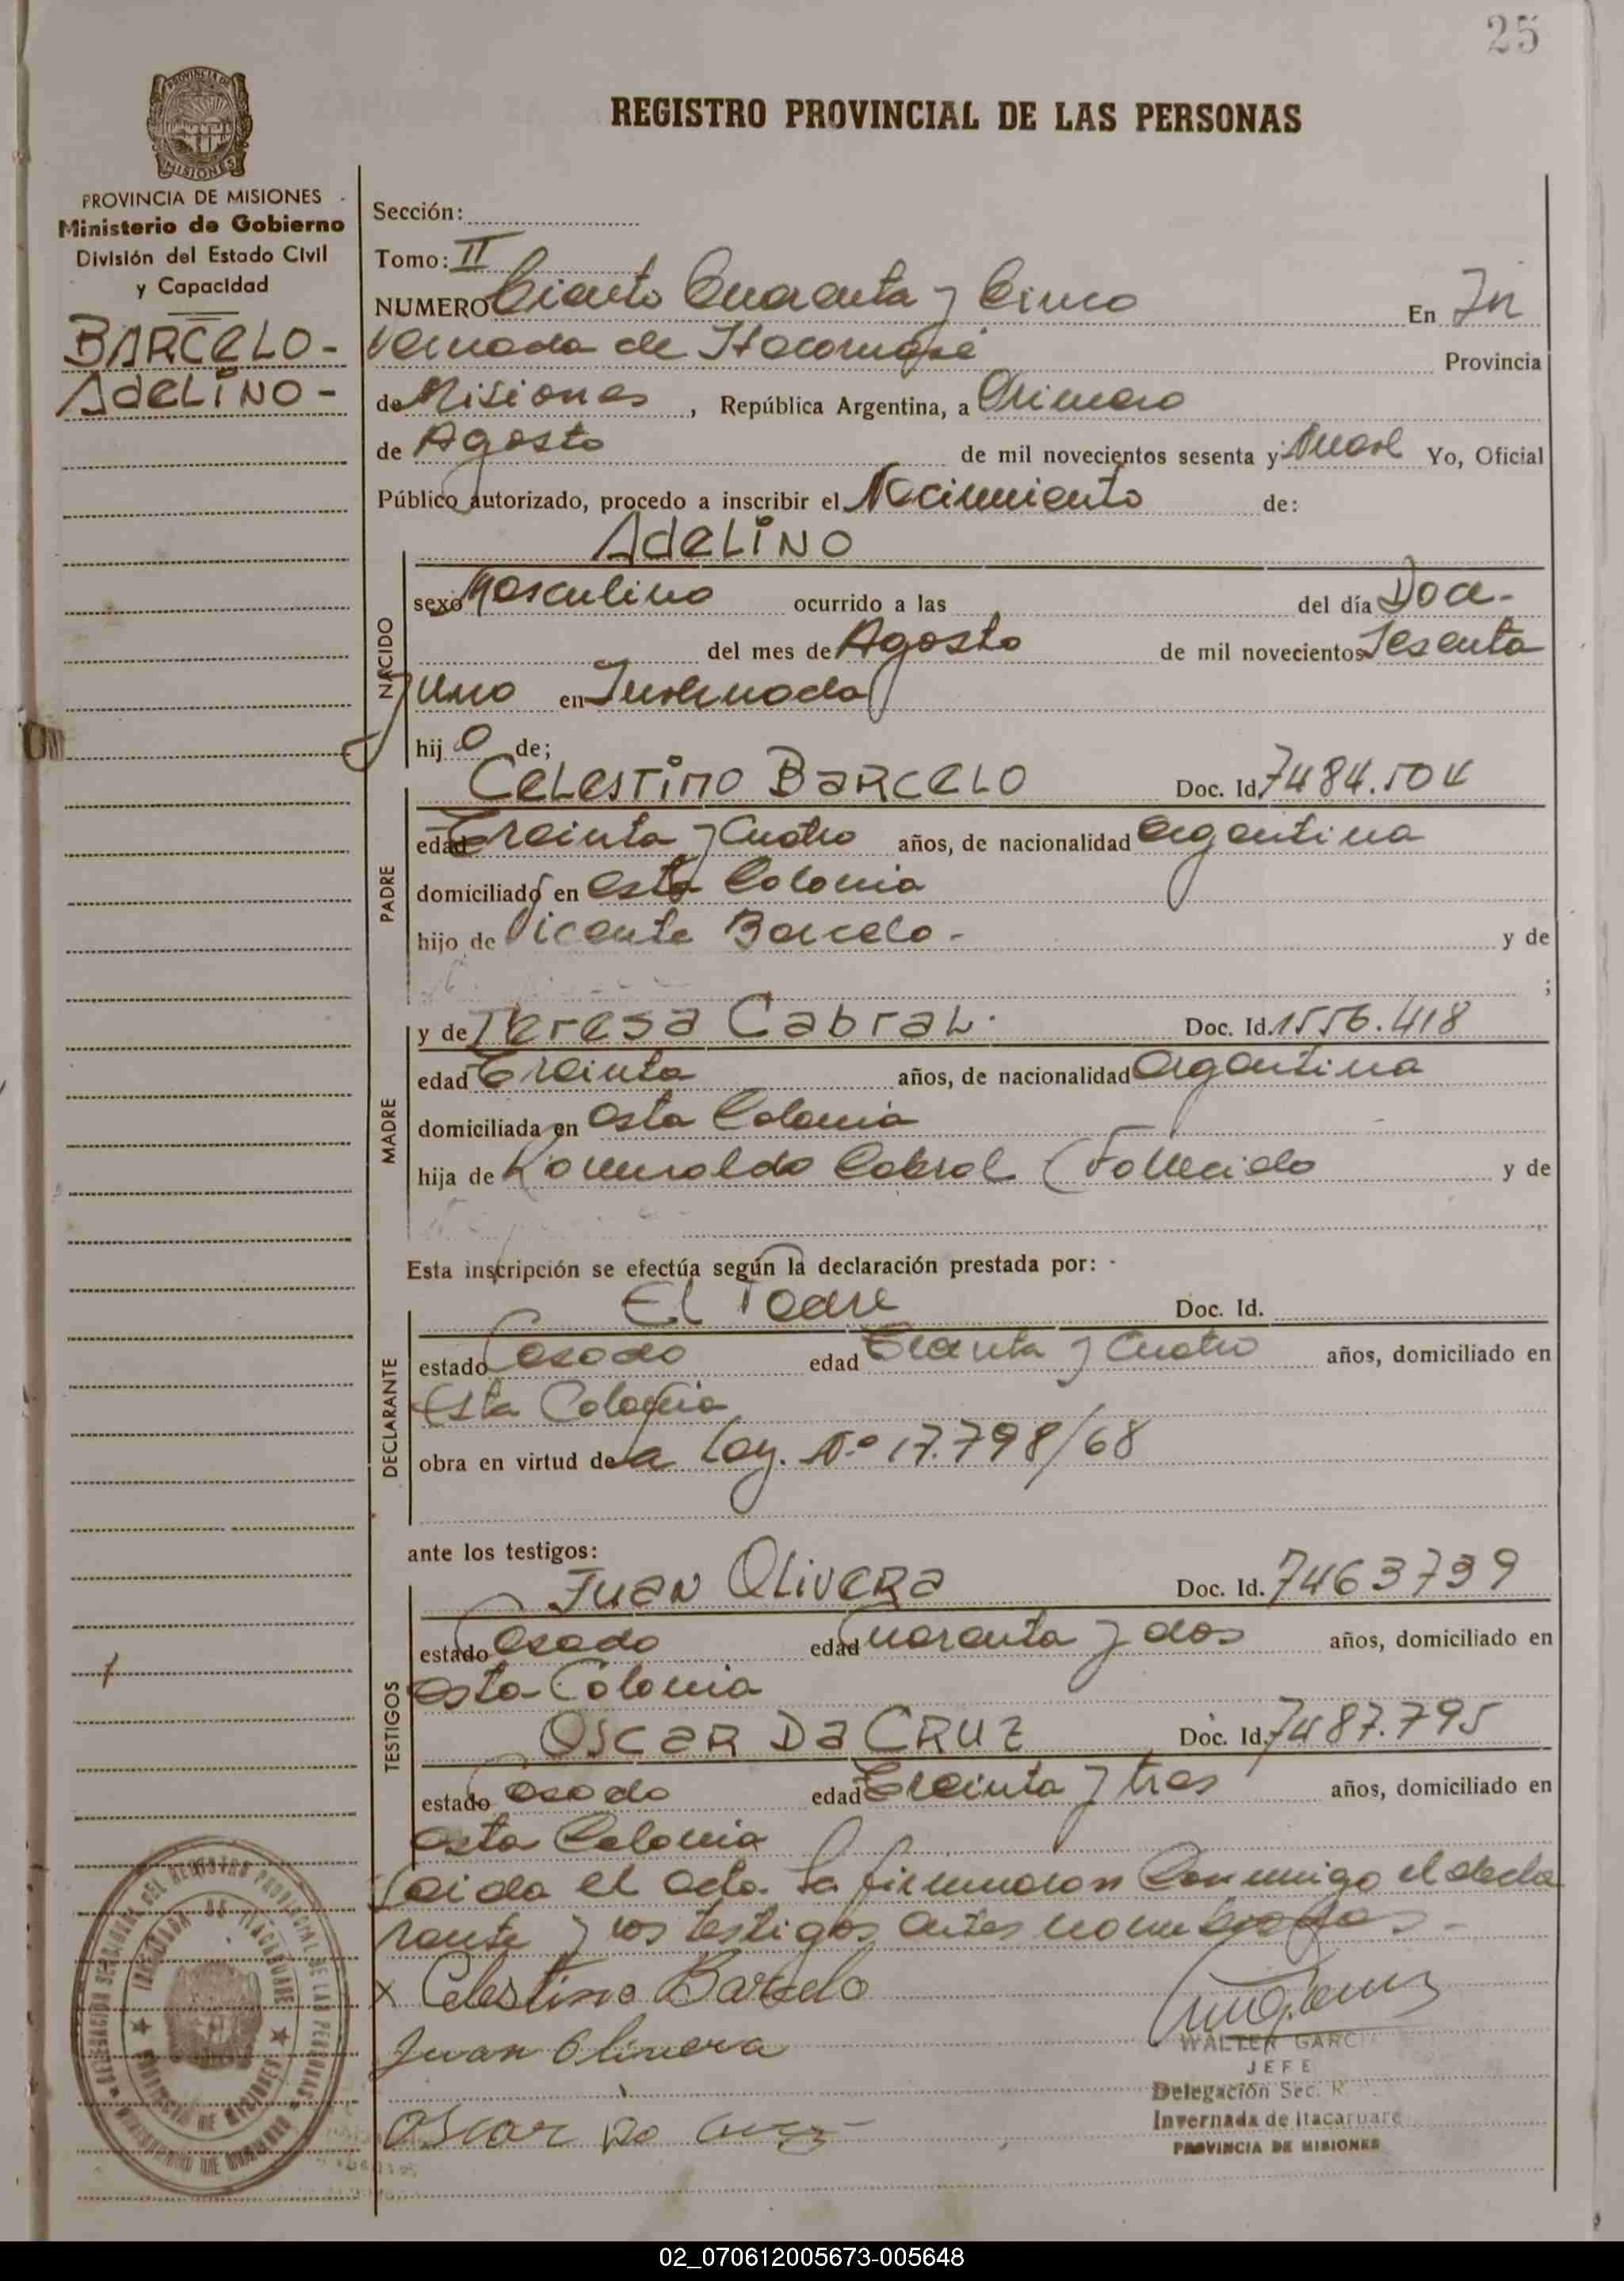 25
REGISTRO PROVINCIAL DE LAS PERSONAS
PROVINCIA DE MISIONES
Ministerio de Gobierno
División del Estado Civil
y Capacidad
BARCELO-
ADELINO-
Sección:
Tomo: II
NUMERO Ciento Cuarenta y Cinco En In
vernada de Itacaruaré Provincia
de Misiones, República Argentina, a Primero
de Agosto de mil novecientos sesenta y nueve Yo, Oficial
Público autorizado, procedo a inscribir el Nacimiento de:
ADELINO
NACIDO
sexo Masculino ocurrido a las del día Doce-
del mes de Agosto de mil novecientos Sesenta
y uno en Invernada
hijo de;
PADRE
CELESTINO BARCELO Doc. Id. 7484.504
edad Treinta y Cuatro años, de nacionalidad argentina
domiciliado en esta Colonia
hijo de Vicente Barcelo- y de
;
MADRE
y de Teresa Cabral. Doc. Id. 1556.418
edad Treinta años, de nacionalidad argentina
domiciliada en esta Colonia
hija de Romualdo Cabral (Fallecido y de
Esta inscripción se efectúa según la declaración prestada por: -
DECLARANTE
El Padre Doc. Id.
estado Casado edad Treinta y Cuatro años, domiciliado en
Esta Colonia
obra en virtud de la Ley. Nº 17.798/68
ante los testigos:
TESTIGOS
JUAN OLIVERA Doc. Id. 7463739
estado Casado edad Cuarenta y dos años, domiciliado en
esta Colonia
OSCAR DA CRUZ Doc. Id. 7487.795
estado Casado edad Treinta y tres años, domiciliado en
esta Colonia
Leida el acta la firmaron Conmigo el decla
rante y los testigos antes nombrados-
x Celestino Barcelo
Juan Olivera
Oscar Da Cruz
WALTER GARCI
JEFE
Delegación Sec. R
Invernada de Itacaruaré
PROVINCIA DE MISIONES
DELEGACION SECCIONAL DEL REGISTRO PROVINCIAL DE LAS PERSONAS
INVERNADA DE ITACARUARE
PROVINCIA DE MISIONES
02_070612005673-005648